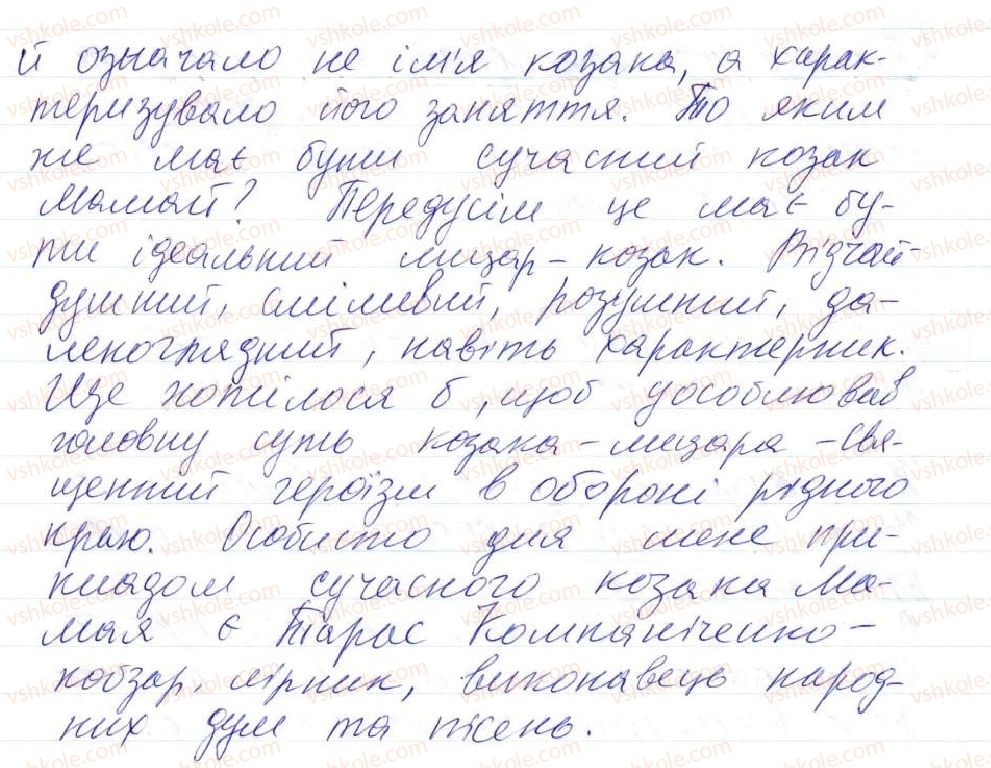 й означало не ім'я козака, а харак-
теризувало його заняття. То яким
же має бути сучасний козак
Мамай? Передусім це має бу-
ти ідеальний лицар-козак. Відчай-
душний, сміливий, розумний, да-
лекоглядний, навіть характерник.
Ще хотілося б, щоб уособлював
головну суть козака-лицара - свя-
щенний героїзм в обороні рідного
краю. Особисто для мене при-
кладом сучасного козака Ма-
мая є Тарас Компаніченко-
кобзар, лірник, виконавець народ-
них дум та пісень.